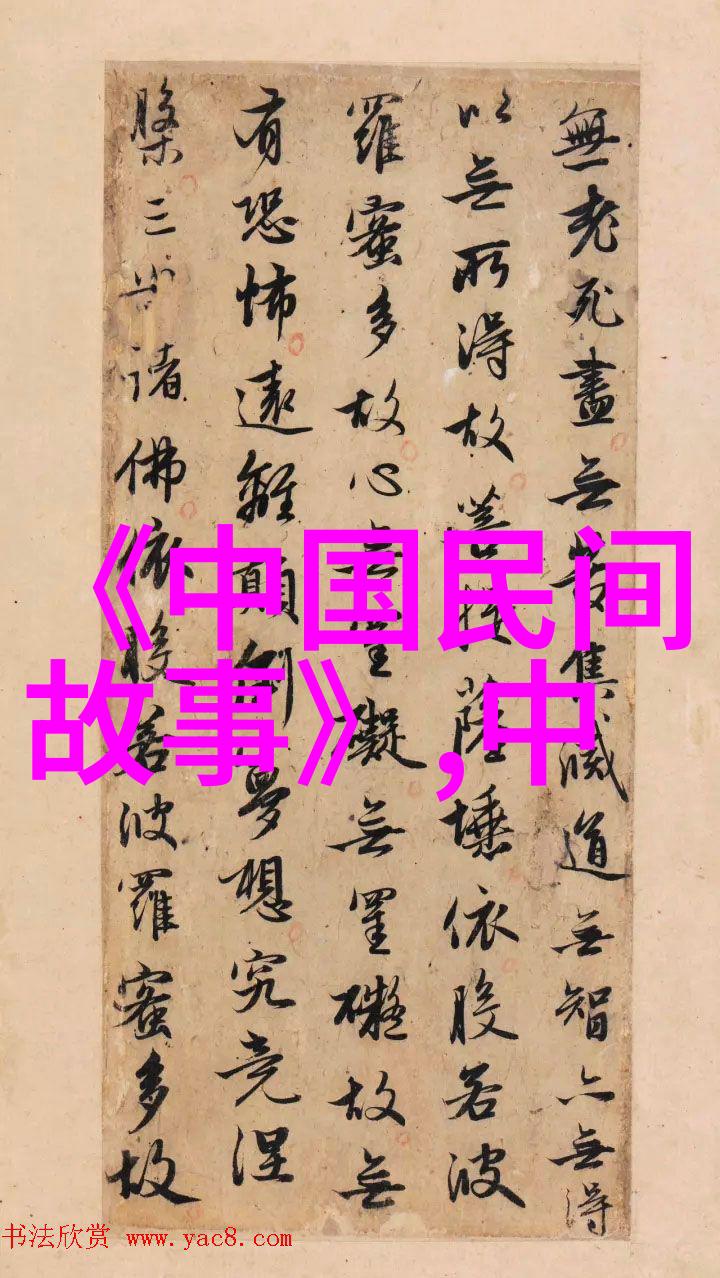 《中国民间
故事》,中
無老死盡无苦集滅道无智亦无得
以无所得故菩提薩埵依般若波
羅蜜多故心无罣礙无罣礙故无
有恐怖遠離顛倒夢想究竟涅
槃三世諸佛依般若波羅蜜多故
书法欣赏 www.yac8.com